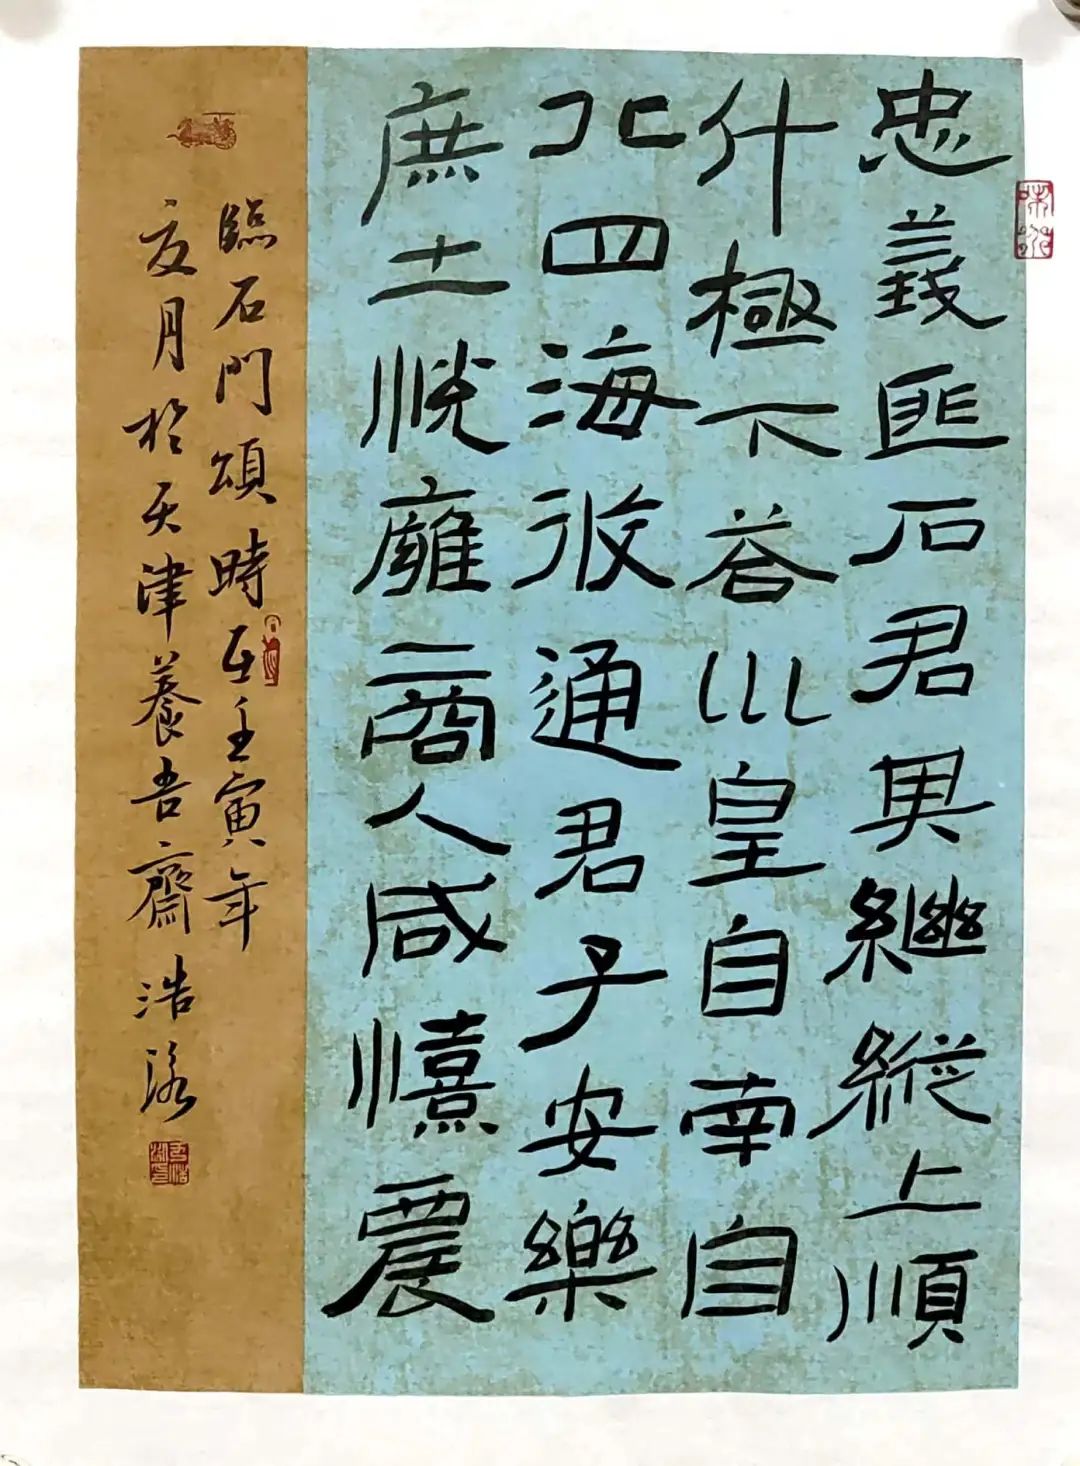 忠義匪石君其繼縱上順
斗極下荅巛皇自南自
北四海攸通君子安樂
庶士悅廱商人咸憘農
臨石門頌時在壬寅年
夏月於天津養吾齋浩